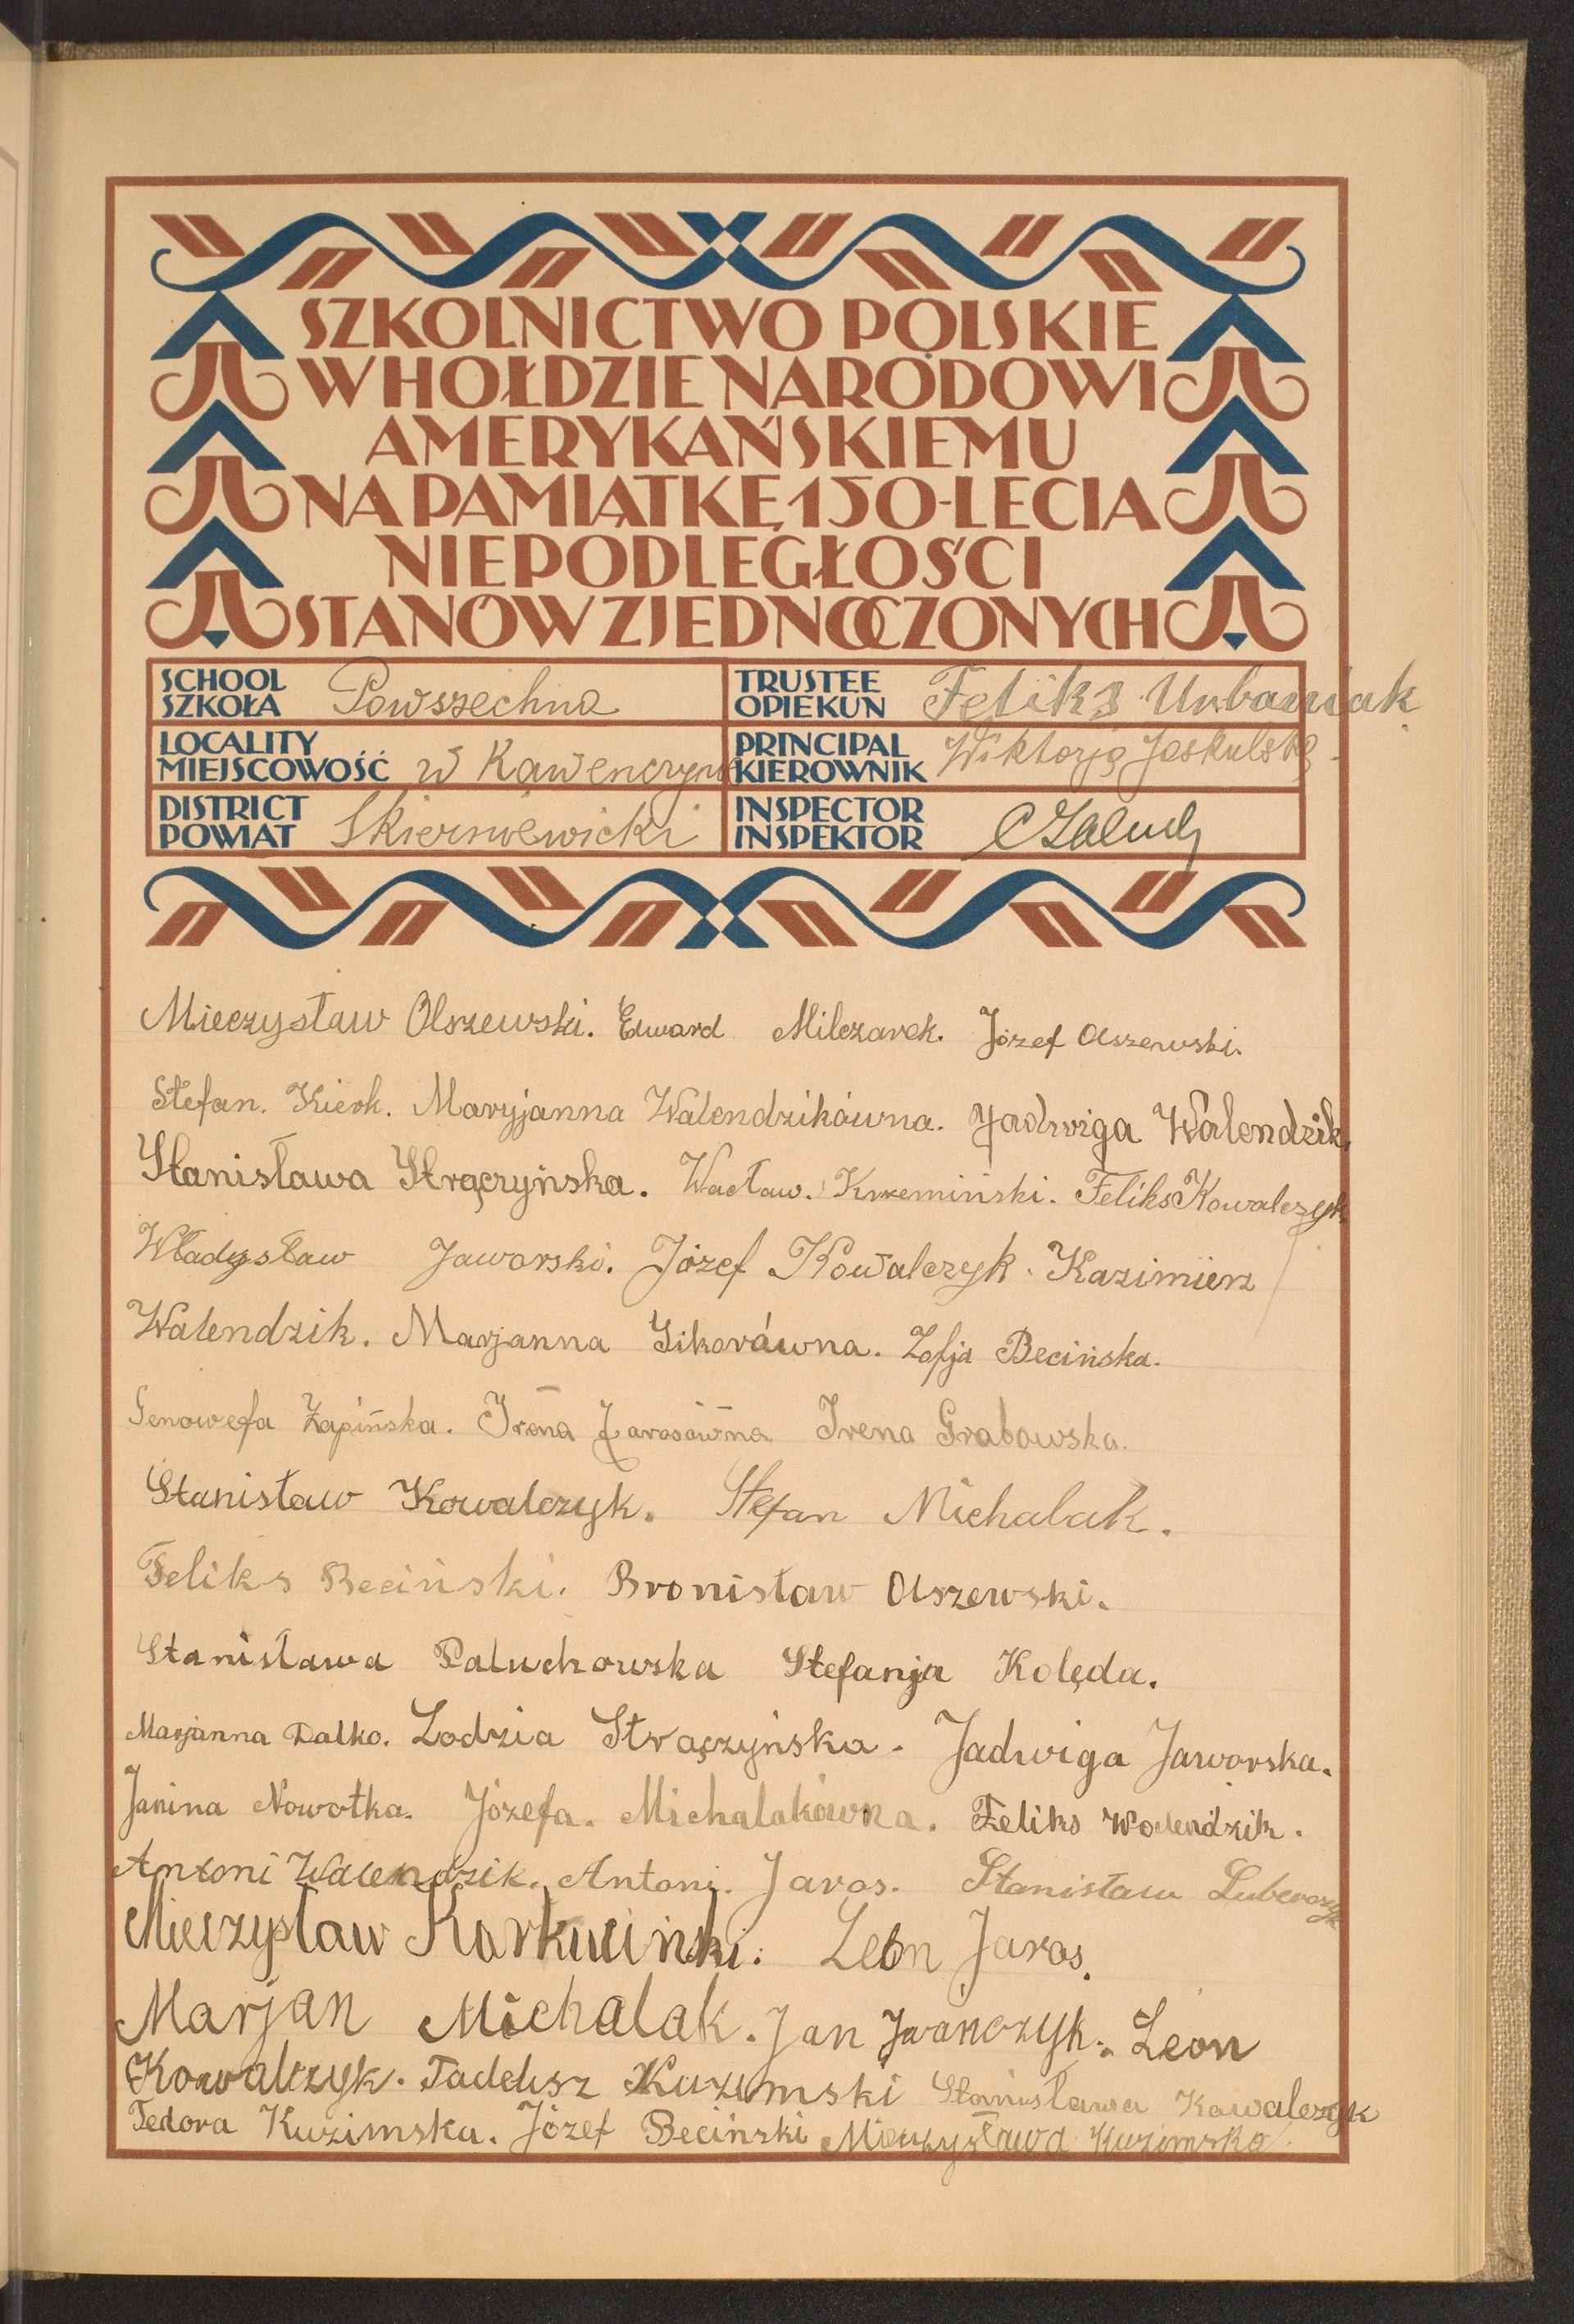 SZKOLNICTWO POLSKIE
W HOŁDZIE NARODOWI
AMERYKAŃSKIEMU
NA PAMIĄTKĘ 150-LECIA
NIEPODLEGŁOŚCI
STANÓW ZJEDNOCZONYCH
SCHOOL
SZKOŁA Powszechna
TRUSTEE
OPIEKUN Feliks Urbaniak
LOCALITY
MIEJSCOWOŚĆ w Kawenczynie
PRINCIPAL
KIEROWNIK Wiktorja Jaskulska
DISTRICT
POWIAT Skierniewicki
INSPECTOR
INSPEKTOR
Mieczysław Olszewski. Edward Milczarek. Józef Olszewski.
Stefan. Kierk. Maryjanna Walendzikówna. Jadwiga Walendzik.
Stanisława Strączyńska. Wacław. Krzemiński. Feliks Kowalczyk
Władysław Jaworski. Józef Kowalczyk. Kazimierz
Walendzik. Marjanna Sikorówna. Zofja Becińska.
Genowefa Łapińska. Irena Jarosówna Irena Grabowska.
Stanisław Kowalczyk. Stefan Michalak.
Feliks Beciński. Bronisław Olszewski.
Stanisława Paluchowska Stefanja Kolęda.
Marjanna Dalko. Lodzia Strączyńska. Jadwiga Jaworska.
Janina Nowotka. Józefa. Michalakówna. Feliks Walendzik.
Antoni Walendzik. Antoni. Jaros. Stanisław
Mieczysław Leon Jaros.
Marjan Michalak. Jan Iwanczyk. Leon
Kowalczyk. Tadeusz Kuzimski Stanisława Kowalczyk
Tedora Kuzimska. Józef Beciński Mieczysława Kuzimska.